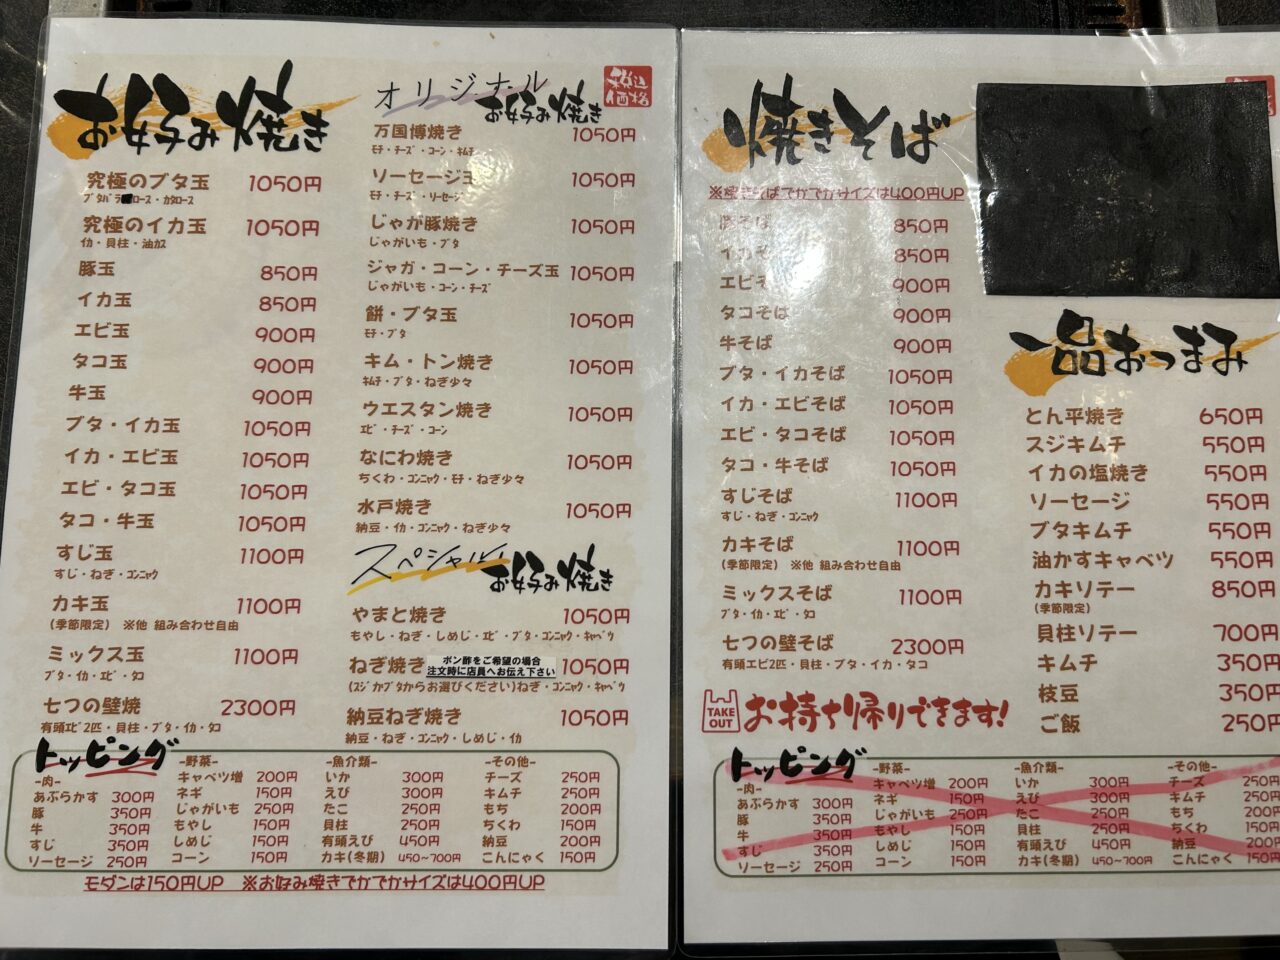 お好み焼き
究極のブタ玉 1050円
ブタバラ ロース・カタロース
究極のイカ玉 1050円
イカ・貝柱・油カス
豚玉 850円
イカ玉 850円
エビ玉 900円
タコ玉 900円
牛玉 900円
ブタ・イカ玉 1050円
イカ・エビ玉 1050円
エビ・タコ玉 1050円
タコ・牛玉 1050円
すじ玉 1100円
すじ・ねぎ・コンニャク
カキ玉 1100円
(季節限定) ※他 組み合わせ自由
ミックス玉 1100円
ブタ・イカ・エビ・タコ
七つの壁焼 2300円
有頭エビ2匹・貝柱・ブタ・イカ・タコ
オリジナル
お好み焼き
税込
価格
万国博焼き 1050円
モチ・チーズ・コーン・キムチ
ソーセージ玉 1050円
モチ・チーズ・ソーセージ
じゃが豚焼き 1050円
じゃがいも・ブタ
ジャガ・コーン・チーズ玉 1050円
じゃがいも・コーン・チーズ
餅・ブタ玉 1050円
モチ・ブタ
キム・トン焼き 1050円
キムチ・ブタ・ねぎ少々
ウエスタン焼き 1050円
エビ・チーズ・コーン
なにわ焼き 1050円
ちくわ・コンニャク・モチ・ねぎ少々
水戸焼き 1050円
納豆・イカ・コンニャク・ねぎ少々
スペシャル
お好み焼き
やまと焼き 1050円
もやし・ねぎ・しめじ・エビ・ブタ・コンニャク・キャベツ
ねぎ焼き ポン酢をご希望の場合 注文時に店員へお伝え下さい 1050円
(スジかブタからお選びください)ねぎ・コンニャク・キャベツ
納豆ねぎ焼き 1050円
納豆・ねぎ・コンニャク・しめじ・イカ
トッピング
-肉-
あぶらかす 300円
豚 350円
牛 350円
すじ 350円
ソーセージ 250円
-野菜-
キャベツ増 200円
ネギ 150円
じゃがいも 250円
もやし 150円
しめじ 150円
コーン 150円
-魚介類-
いか 300円
えび 300円
たこ 250円
貝柱 250円
有頭えび 450円
カキ(冬期) 450～700円
-その他-
チーズ 250円
キムチ 250円
もち 200円
ちくわ 150円
納豆 200円
こんにゃく 150円
モダンは150円UP ※お好み焼きでかでかサイズは400円UP
焼きそば
※焼きそばでかでかサイズは400円UP
豚そば 850円
イカそ 850円
エビそ 900円
タコそば 900円
牛そば 900円
ブタ・イカそば 1050円
イカ・エビそば 1050円
エビ・タコそば 1050円
タコ・牛そば 1050円
すじそば 1100円
すじ・ねぎ・コンニャク
カキそば 1100円
(季節限定) ※他 組み合わせ自由
ミックスそば 1100円
ブタ・イカ・エビ・タコ
七つの壁そば 2300円
有頭エビ2匹・貝柱・ブタ・イカ・タコ
TAKE OUT
お持ち帰りできます!
一品おつまみ
とん平焼き 650円
スジキムチ 550円
イカの塩焼き 550円
ソーセージ 550円
ブタキムチ 550円
油かすキャベツ 550円
カキソテー 850円
(季節限定)
貝柱ソテー 700円
キムチ 350円
枝豆 350円
ご飯 250円
トッピング
-肉-
あぶらかす 300円
豚 350円
牛 350円
すじ 350円
ソーセージ 250円
-野菜-
キャベツ増 200円
ネギ 150円
じゃがいも 250円
もやし 150円
しめじ 150円
コーン 150円
-魚介類-
いか 300円
えび 300円
たこ 250円
貝柱 250円
有頭えび 450円
カキ(冬期) 450～700円
-その他-
チーズ 250円
キムチ 250円
もち 200円
ちくわ 150円
納豆 200円
こんにゃく 150円